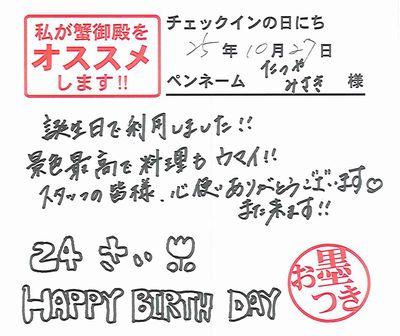 私が蟹御殿を
オススメ
します!!
チェックインの日にち
25年10月27日
たつや
ペンネーム みさき 様
誕生日で利用しました!!
景色最高で料理もウマイ!!
スタッフの皆様、心使いありがとうございます♡
また来ます!!
24さい
HAPPY BIRTH DAY
お墨つき